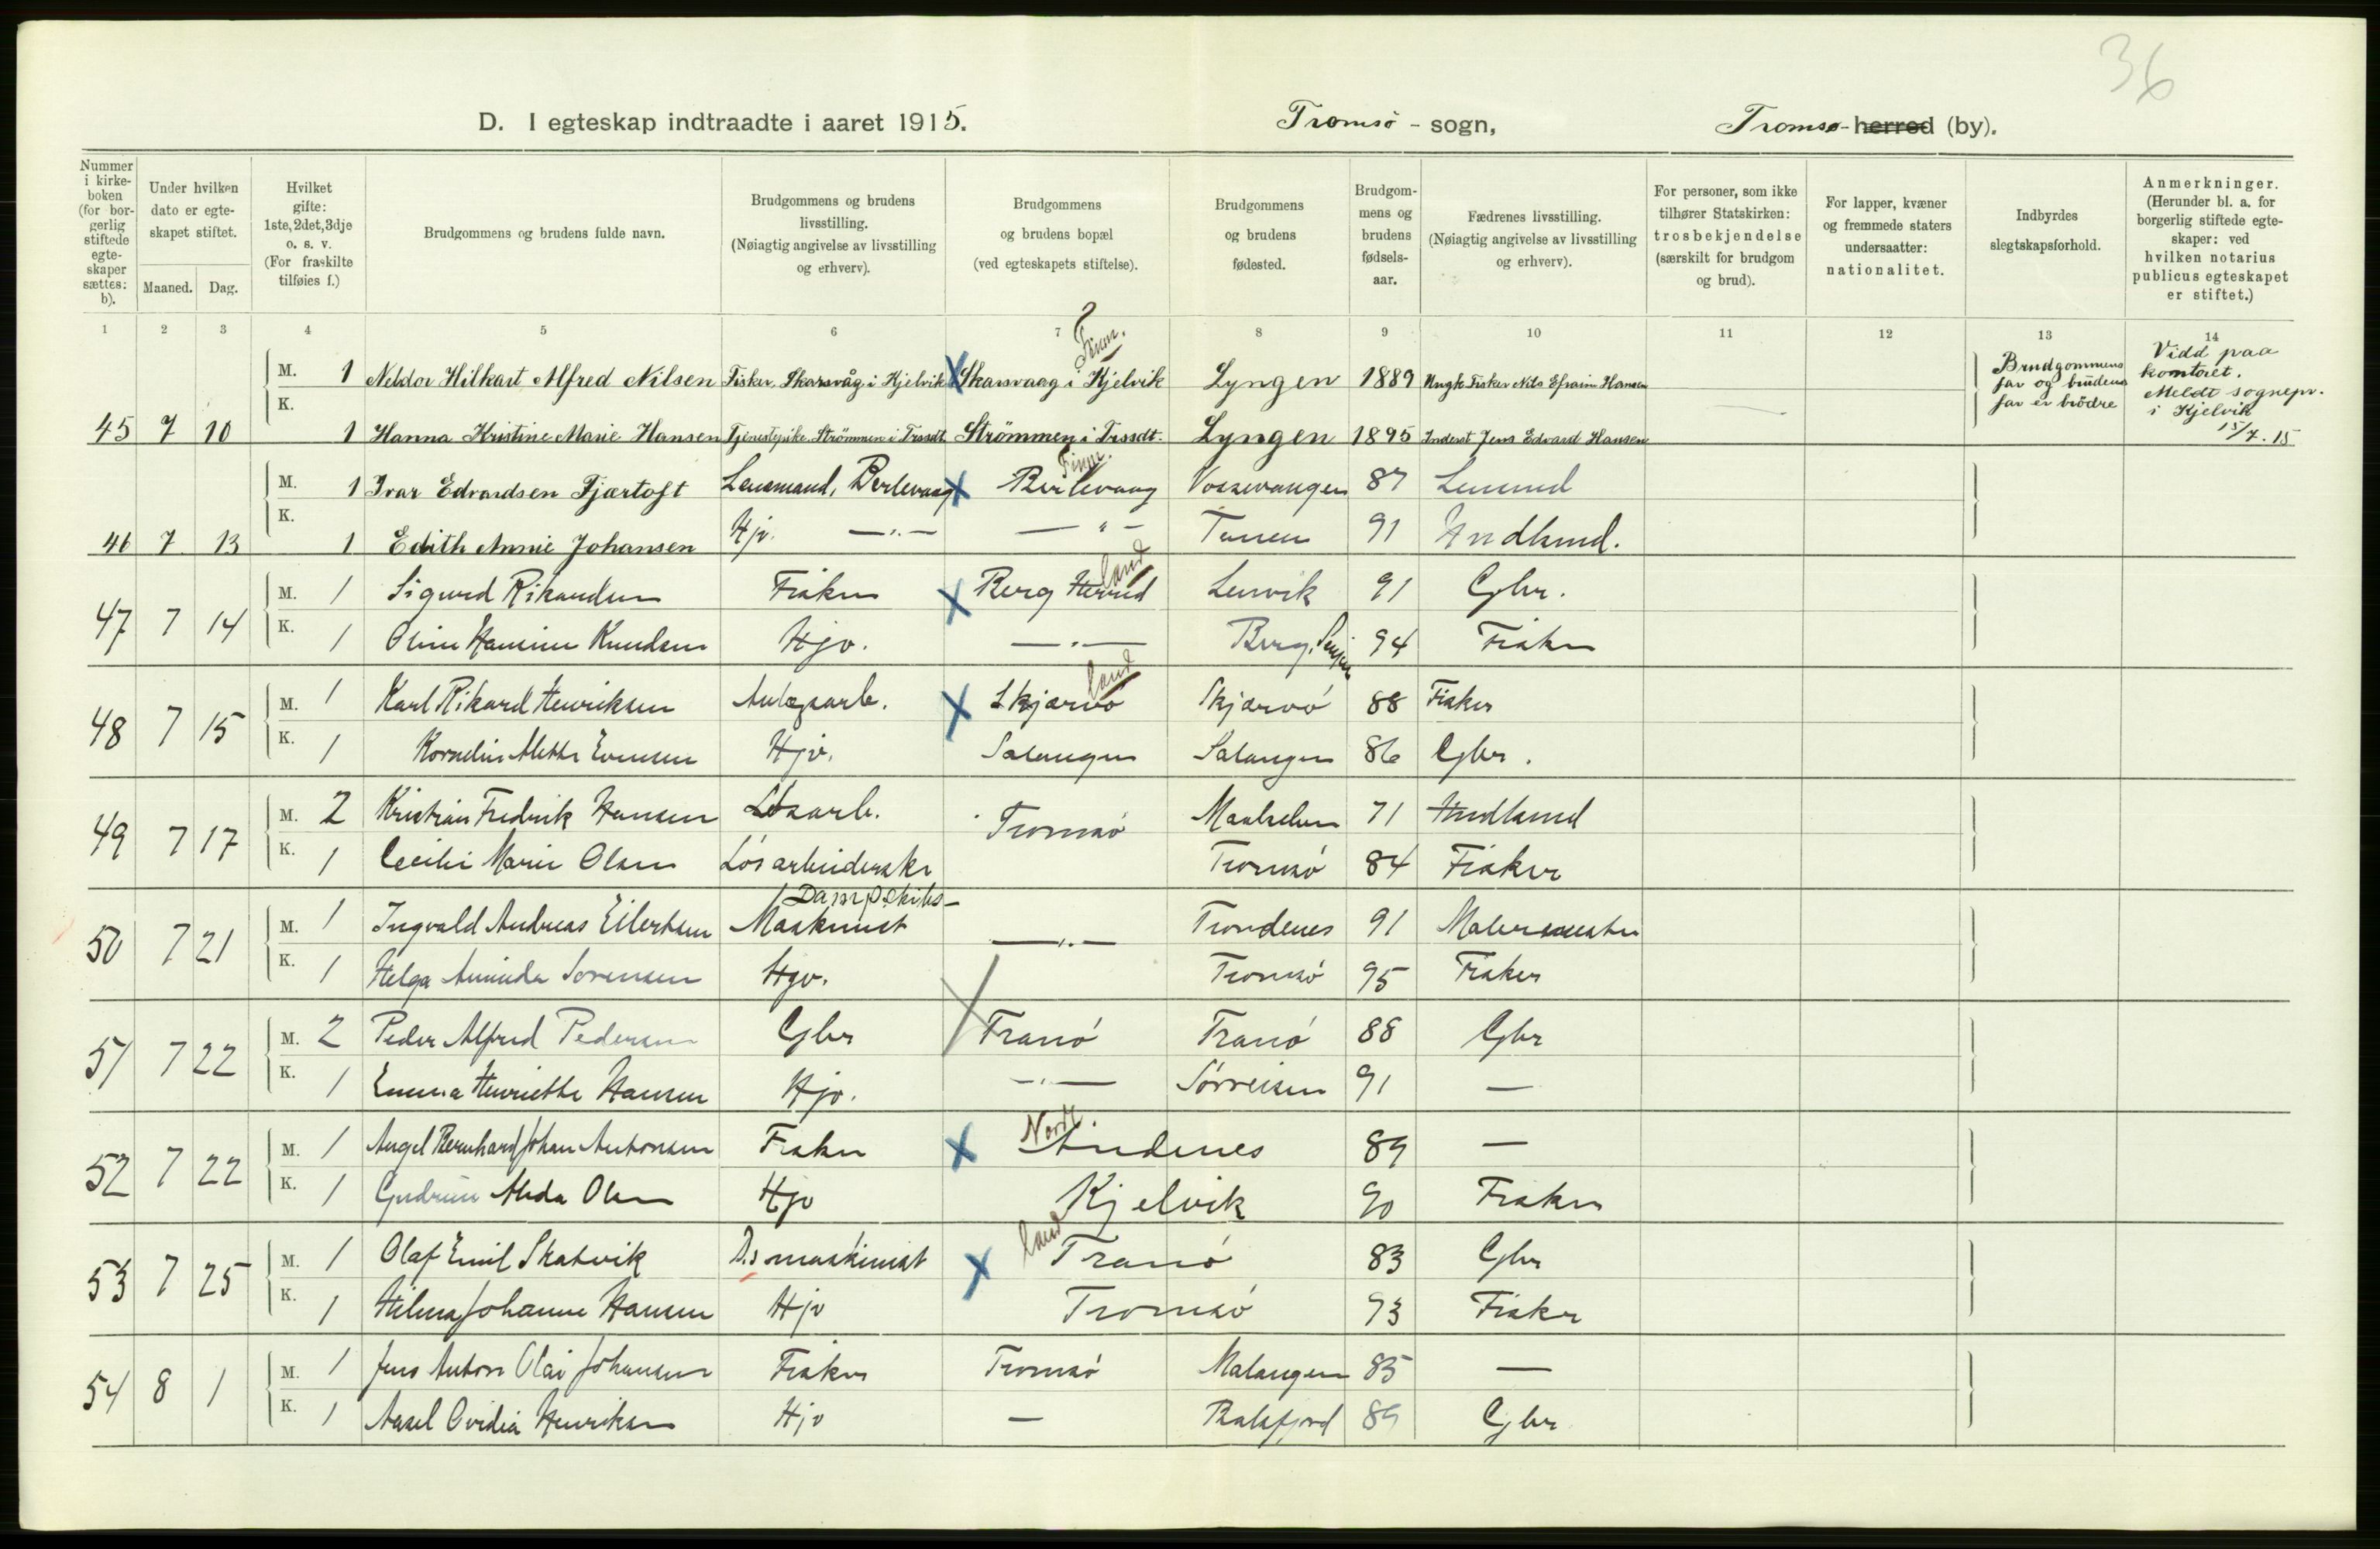 36
D. I egteskap indtraadte i aaret 1915. Tromsø - sogn, Tromsø - herred (by).
Nummer i kirke- boken (for bor- gerlig stiftede egte- skaper sættes: b).
Under hvilken dato er egte- skapet stiftet.
Maaned. Dag.
Hvilket gifte: 1ste, 2det, 3dje o. s. v. (For fraskilte tilføies f.)
Brudgommens og brudens fulde navn.
Brudgommens og brudens livsstilling. (Nøiagtig angivelse av livsstilling og erhverv).
Brudgommens og brudens bopæl (ved egteskapets stiftelse).
Brudgommens og brudens fødested.
Brudgom- mens og brudens fødsels- aar.
Fædrenes livsstilling. (Nøiagtig angivelse av livsstilling og erhverv).
For personer, som ikke tilhører Statskirken: trosbekjendelse (særskilt for brudgom og brud).
For lapper, kvæner og fremmede staters undersaatter: nationalitet.
Indbyrdes slegtskapsforhold.
Anmerkninger. (Herunder bl. a. for borgerlig stiftede egte- skaper: ved hvilken notarius publicus egteskapet er stiftet.)
1 2 3 4 5 6 7 8 9 10 11 12 13 14
M. 1 Neldor Hilkart Alfred Nilsen Fisker, Skarsvåg i Kjelvik X Skarsvaag i Kjelvik Finm. Lyngen 1889 Ungk. Fisker Nils Efraim Hansen Brudgommens far og brudens far er brödre Vidd paa kontoret. Meldt sognepr. i Kjelvik 15/7. 15
45 7 10 K. 1 Hanna Kristine Marie Hansen Tjenestepike. Strömmen i Tromsdt. Strömmen i Tromsdt. Lyngen 1895 Inderst Jens Edvard Hansen
M. 1 Ivar Edvardsen Tjærtoft Lensmand, Berlevaag X Berlevaag Finm. Vossevangen 87 Lensmd
46 7 13 K. 1 Edith Annie Johansen Hjv. —"— —"— Tanen 91 Handlsmd.
47 7 14 M. 1 Sigurd Rikardsen Fisker X Berg Herred land Lenvik 91 Gbr.
K. 1 Oline Hansine Knudsen Hjv. —"— Berg, Senjen 94 Fisker
48 7 15 M. 1 Karl Rikard Henriksen Anlegsarb. X Skjærvö land Skjærvö 88 Fisker
K. 1 Kornelia Alette Evensen Hjv. Salangen Salangen 86 Gbr.
49 7 17 M. 2 Kristian Fredrik Hansen Lösarb. Tromsö Maalselven 71 Handlsmd
K. 1 Cecilie Marie Olsen Lösarbeiderske Tromsö 84 Fisker
50 7 21 M. 1 Ingvald Andreas Eilertsen Dampskibs- Maskinist —"— Trondenes 91 Malermester
K. 1 Helga Aminda Sørensen Hjv. Tromsö 95 Fisker
51 7 22 M. 2 Peder Alfred Pedersen Gbr X Tranö Tranö 88 Gbr
K. 1 Emma Henriette Hansen Hjv. —"— Sörreisen 91 —
52 7 22 M. 1 Angel Bernhard Johan Antonsen Fisker X Nordl. Andenes 89 —
K. 1 Gudrun Alida Olsen Hjv Kjelvik 90 Fisker
53 7 25 M. 1 Olaf Emil Skatvik D.s maskinist X land Tranö 83 Gbr
K. 1 Hilma Johanne Hansen Hjv Tromsö 93 Fisker
54 8 1 M. 1 Jens Anton Olai Johansen Fisker Tromsö Malangen 85 —
K. 1 Aasel Ovidia Henriksen Hjv — Balsfjord 89 Gbr